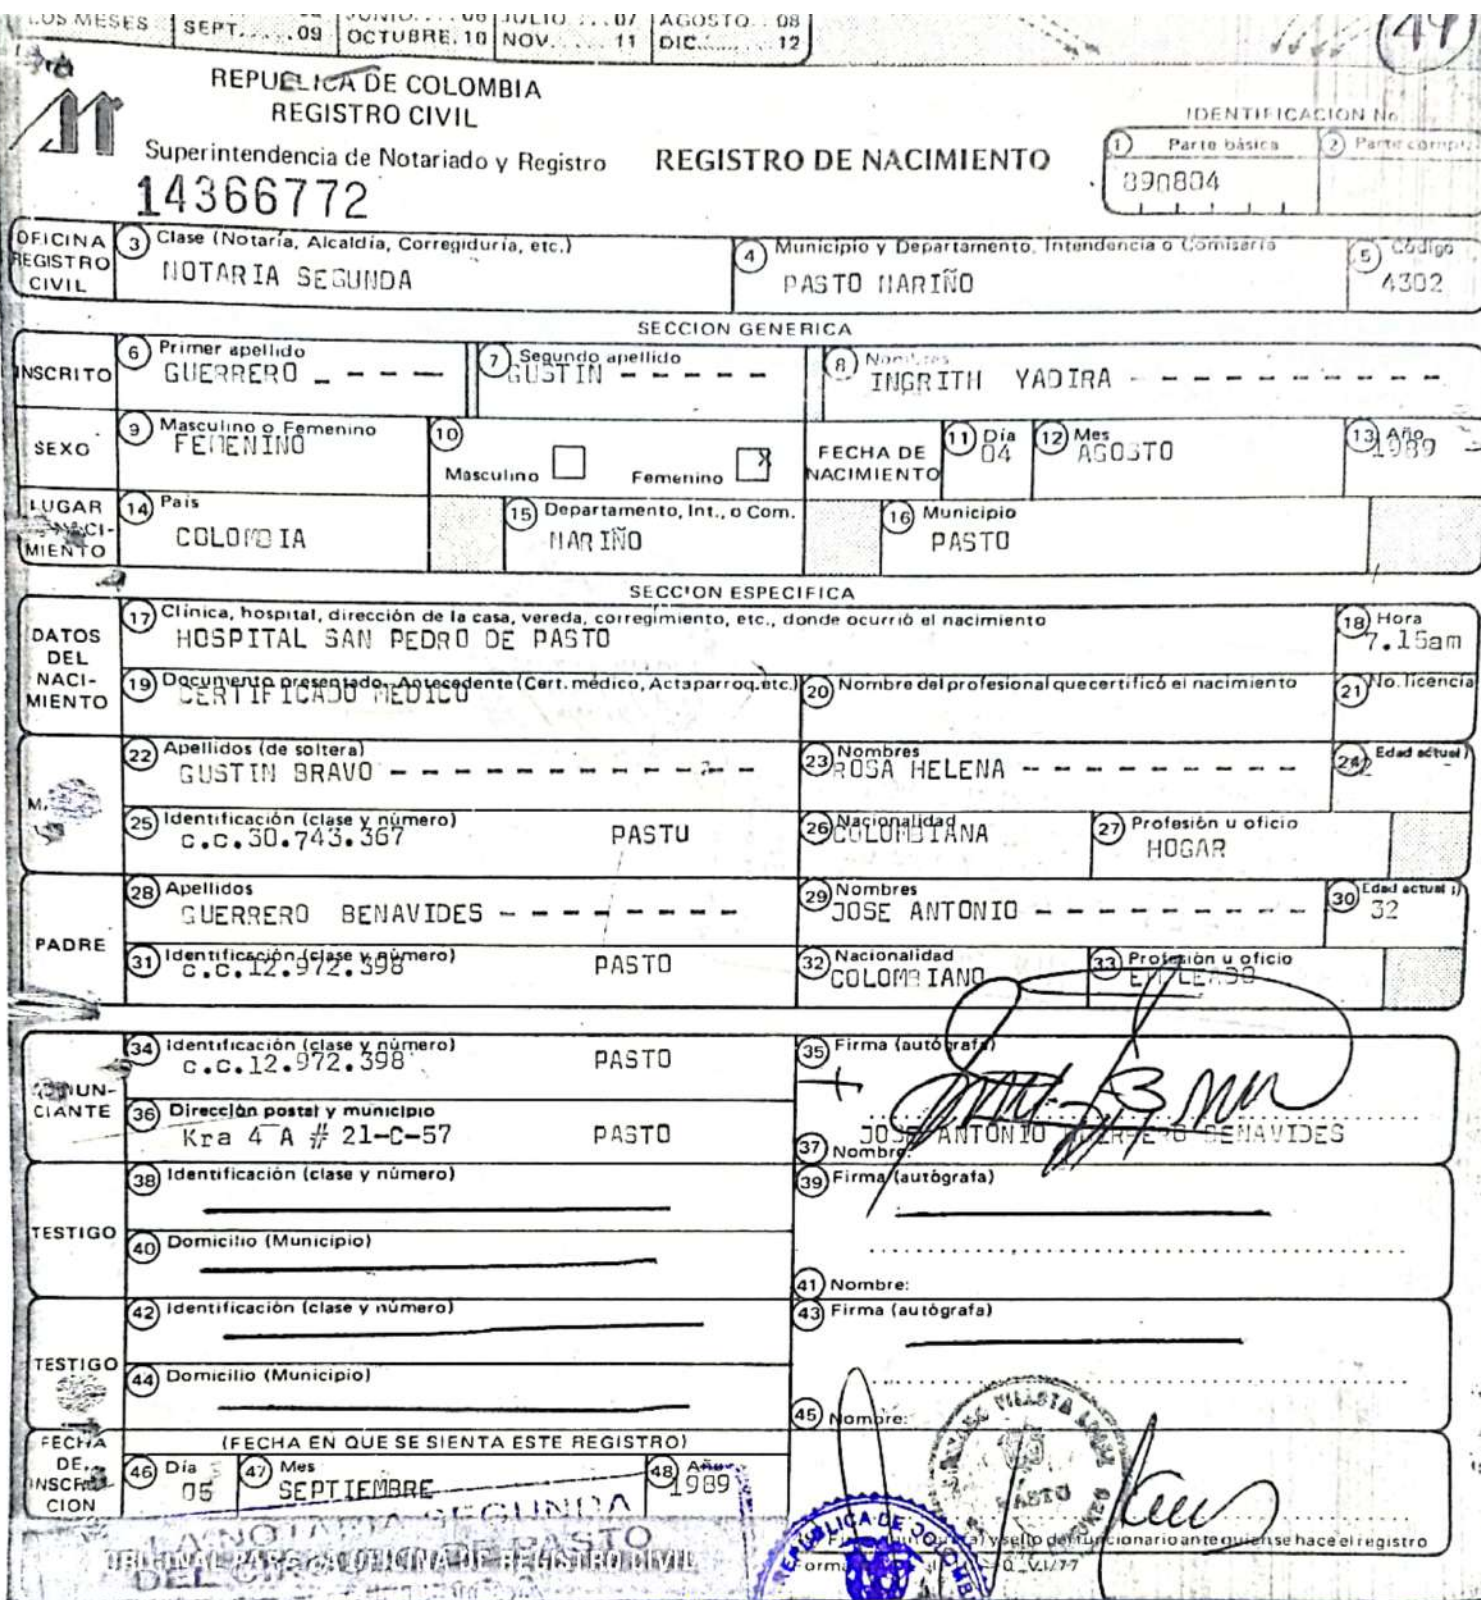 LOS MESES SEPT......09 OCTUBRE.10 NOV......11 DIC........12
JUNIO....06 JULIO....07 AGOSTO..08
REPUBLICA DE COLOMBIA
REGISTRO CIVIL
IDENTIFICACION No.
Superintendencia de Notariado y Registro
REGISTRO DE NACIMIENTO
1 Parte básica
2 Parte compl.
890804
14366772
OFICINA REGISTRO CIVIL
3 Clase (Notaría, Alcaldía, Corregiduría, etc.)
NOTARIA SEGUNDA
4 Municipio y Departamento, Intendencia o Comisaría
PASTO NARIÑO
5 Código
4302
SECCION GENERICA
INSCRITO
6 Primer apellido
GUERRERO _ - - -
7 Segundo apellido
GUSTIN - - - - -
8 Nombres
INGRITH YADIRA - - - - - - - - - - -
SEXO
9 Masculino o Femenino
FEMENINO
10
Masculino
Femenino X
FECHA DE NACIMIENTO
11 Día
04
12 Mes
AGOSTO
13 Año
1989
LUGAR NACI-MIENTO
14 País
COLOMBIA
15 Departamento, Int., o Com.
NARIÑO
16 Municipio
PASTO
SECCION ESPECIFICA
DATOS DEL NACI-MIENTO
17 Clínica, hospital, dirección de la casa, vereda, corregimiento, etc., donde ocurrió el nacimiento
HOSPITAL SAN PEDRO DE PASTO
18 Hora
7.15am
19 Documento presentado-Antecedente (Cert. médico, Acta parroq. etc.)
CERTIFICADO MEDICO
20 Nombre del profesional que certificó el nacimiento
21 No. licencia
22 Apellidos (de soltera)
GUSTIN BRAVO - - - - - - - - - - - -
23 Nombres
ROSA HELENA - - - - - - - - -
24 Edad actual
25 Identificación (clase y número)
c.c.30.743.367 PASTO
26 Nacionalidad
COLOMBIANA
27 Profesión u oficio
HOGAR
PADRE
28 Apellidos
GUERRERO BENAVIDES - - - - - - - -
29 Nombres
JOSE ANTONIO - - - - - - - - -
30 Edad actual
32
31 Identificación (clase y número)
c.c.12.972.398 PASTO
32 Nacionalidad
COLOMBIANO
33 Profesión u oficio
EMPLEADO
DENUN-CIANTE
34 Identificación (clase y número)
c.c.12.972.398 PASTO
35 Firma (autógrafa)
36 Dirección postal y municipio
Kra 4 A # 21-C-57 PASTO
JOSE ANTONIO GUERRERO BENAVIDES
37 Nombre:
TESTIGO
38 Identificación (clase y número)
39 Firma (autógrafa)
40 Domicilio (Municipio)
41 Nombre:
TESTIGO
42 Identificación (clase y número)
43 Firma (autógrafa)
44 Domicilio (Municipio)
45 Nombre:
FECHA DE INSCRIP-CION
(FECHA EN QUE SE SIENTA ESTE REGISTRO)
46 Día
05
47 Mes
SEPTIEMBRE
48 Año
1989
LA NOTARIA SEGUNDA
ORIGINAL PARA LA OFICINA DE REGISTRO CIVIL
DEL PASTO
REPUBLICA DE COLOMBIA
PASTO
y sello del funcionario ante quien se hace el registro